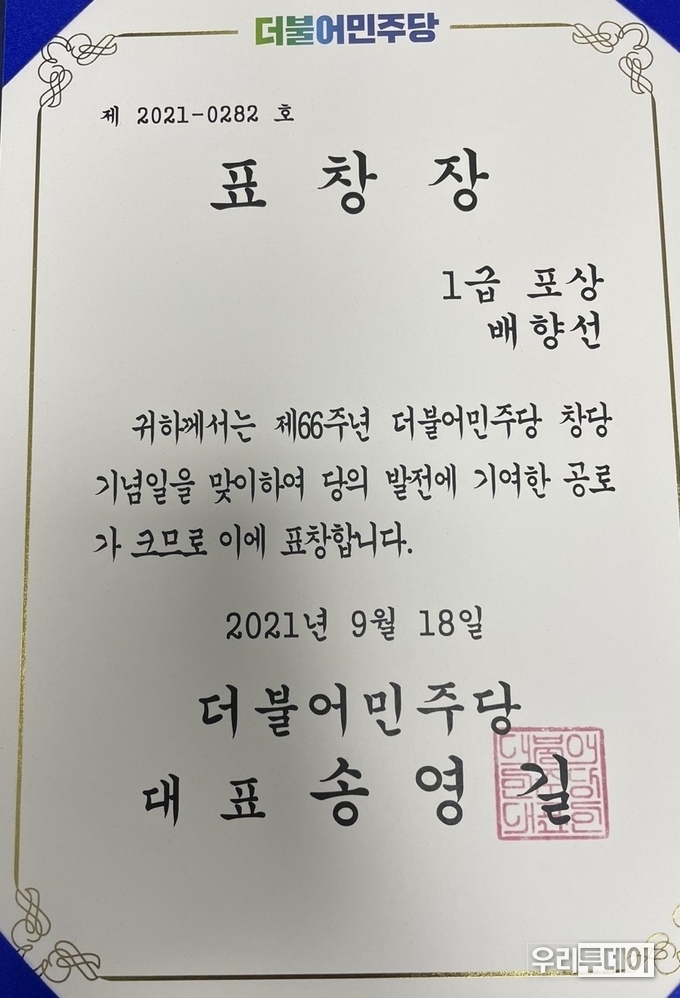 더불어민주당
제 2021-0282 호
표 창 장
1급 포상
배향선
귀하께서는 제66주년 더불어민주당 창당
기념일을 맞이하여 당의 발전에 기여한 공로
가 크므로 이에 표창합니다.
2021년 9월 18일
더불어민주당
대 표 송 영 길
우리투데이